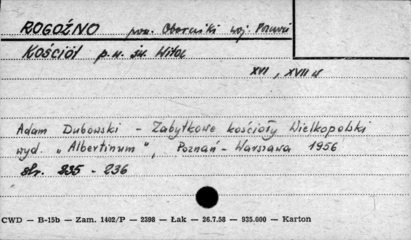 ROGOŹNO pow. Oborniki woj. Poznań
KOŚCIÓŁ p.w. św. Wita
XVI, XVII w
Adam Dubowski - Zabytkowe kościoły Wielkopolski
wyd. „Albertinum", Poznań - Warszawa 1956
str. 235 - 236
CWD — B-15b — Zam. 1402/P — 2398 — Łak — 26.7.58 — 935.000 — Karton